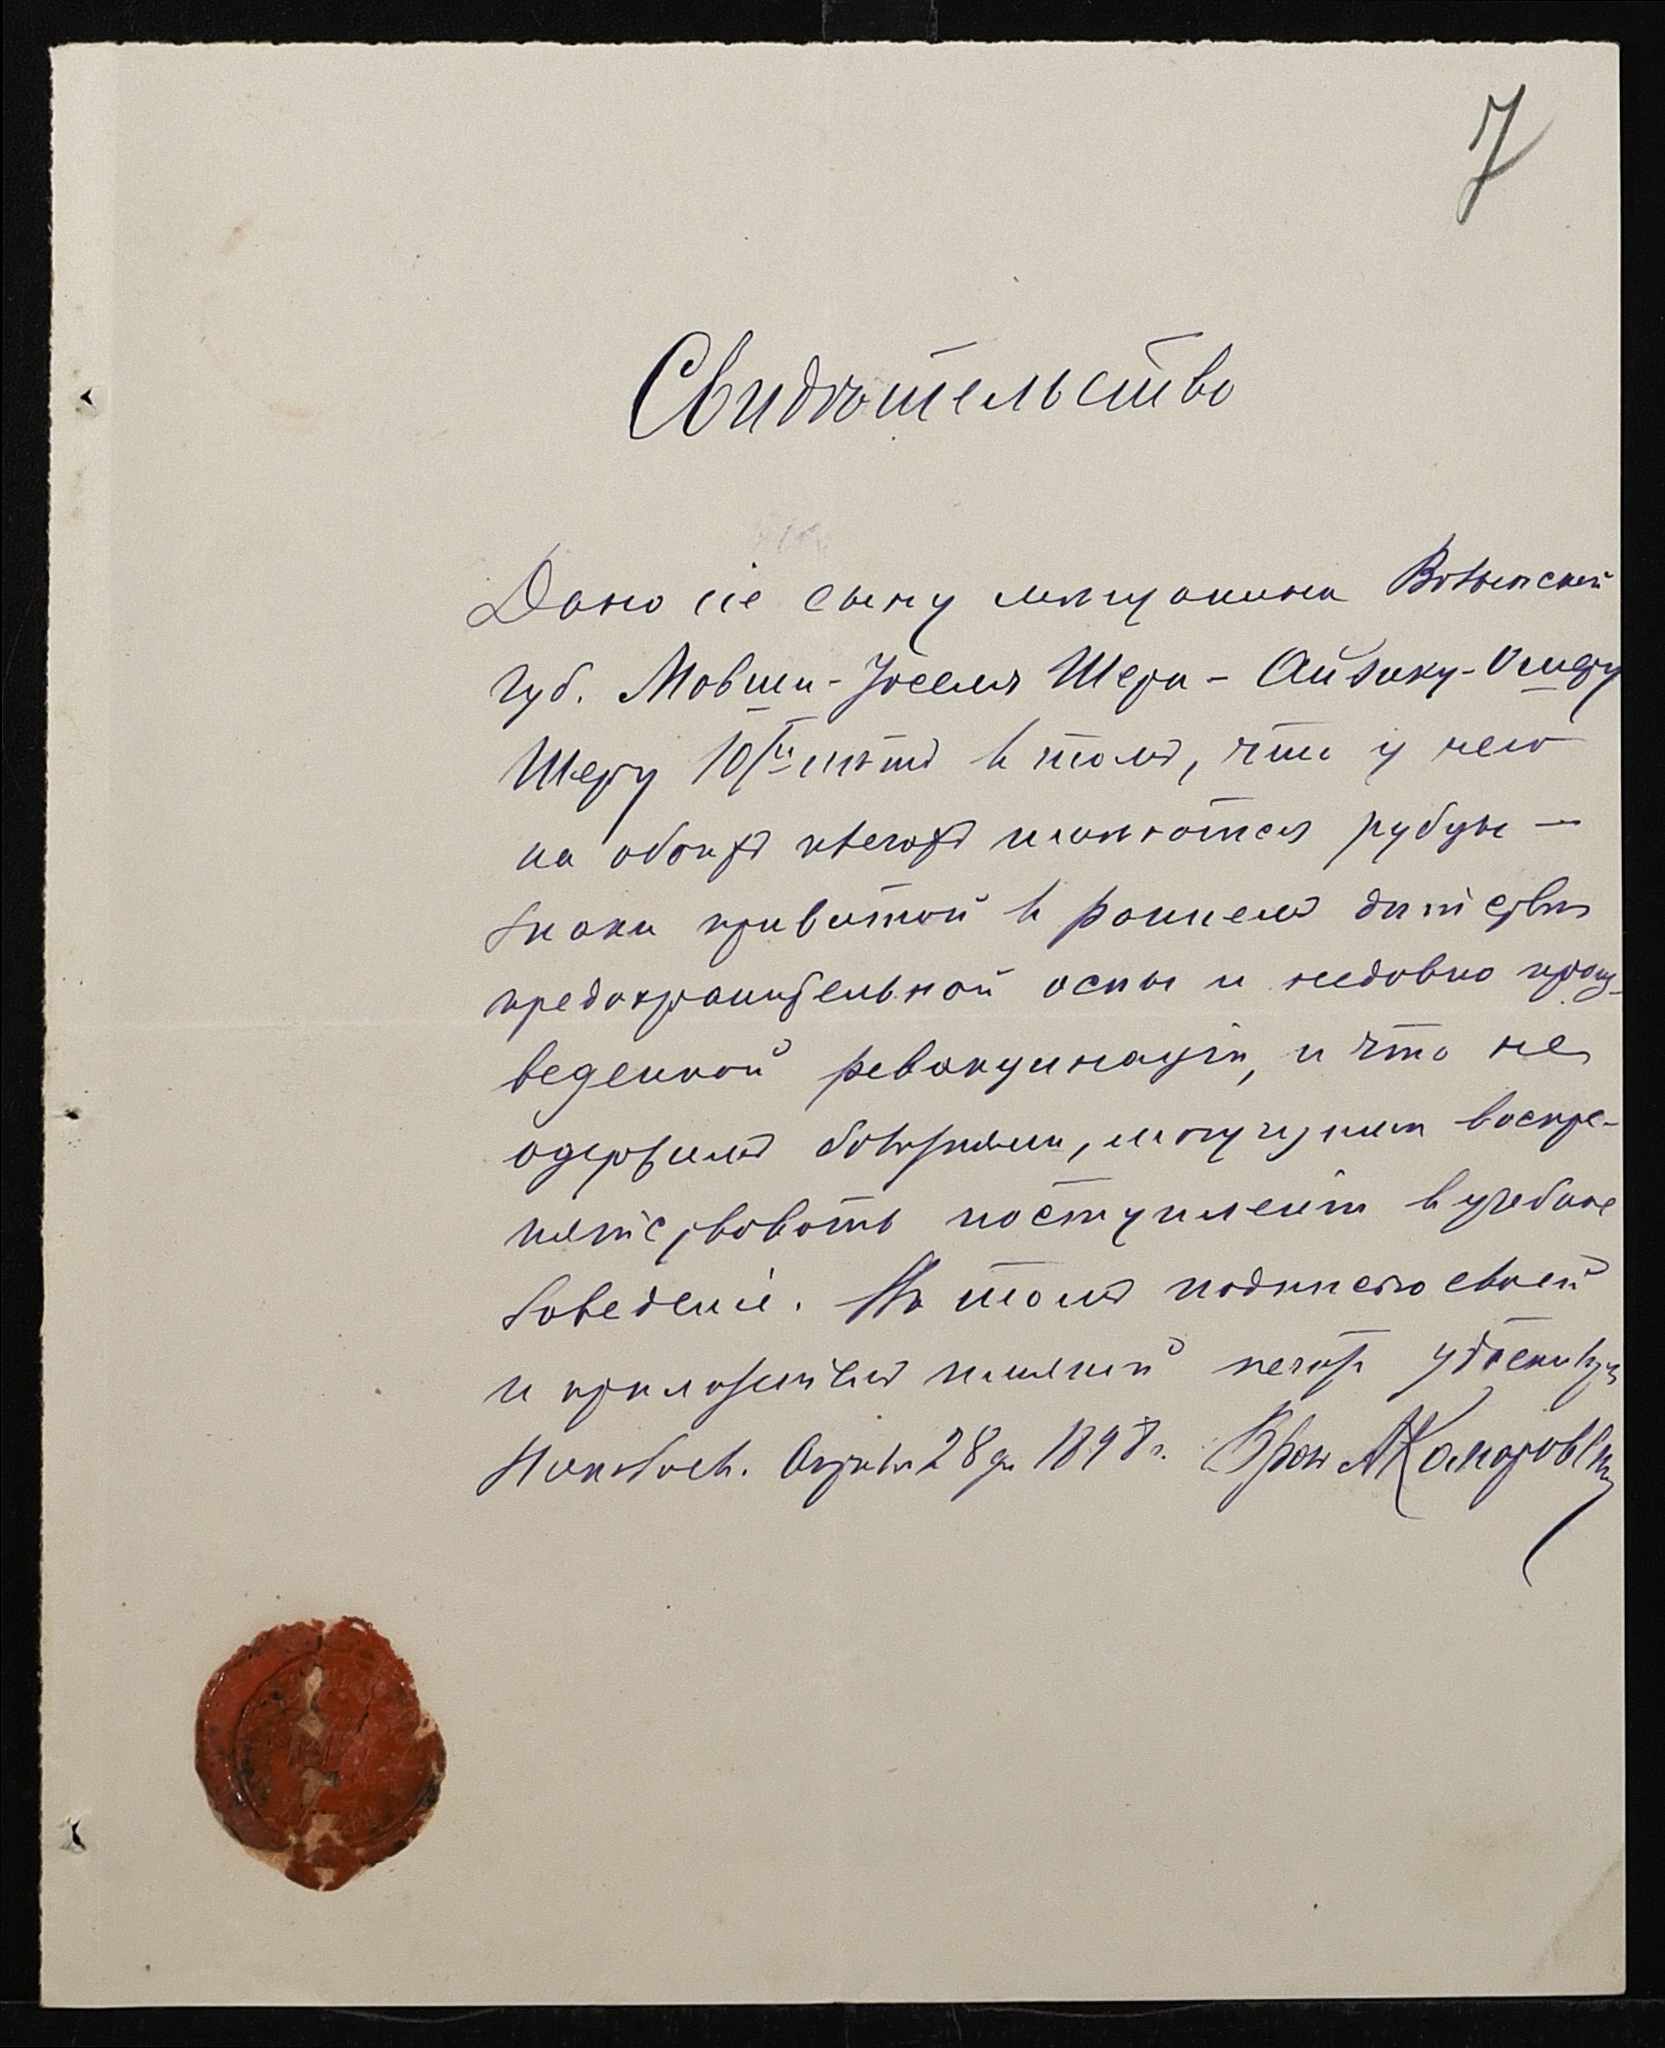 7
Свидѣтельство
Дано сіе сыну мѣщанина Волынской
губ. Мовши-Іоселя Шера - Айзику-Ошеру
Шеру 10ти лѣтъ в томъ, что у него
на обоихъ плечахъ имѣются рубцы —
знаки привитой в раннемъ дѣтствѣ
предохранительной оспы и недавно произ-
веденной ревакцинаціи, и что не
одержимъ болѣзнями, могущими воспре-
пятствовать поступленію в учебное
заведеніе. Въ томъ подписью своей
и приложеніемъ именной печати удостовѣряю
Апрѣля 28 дн 1898 г. Врач А